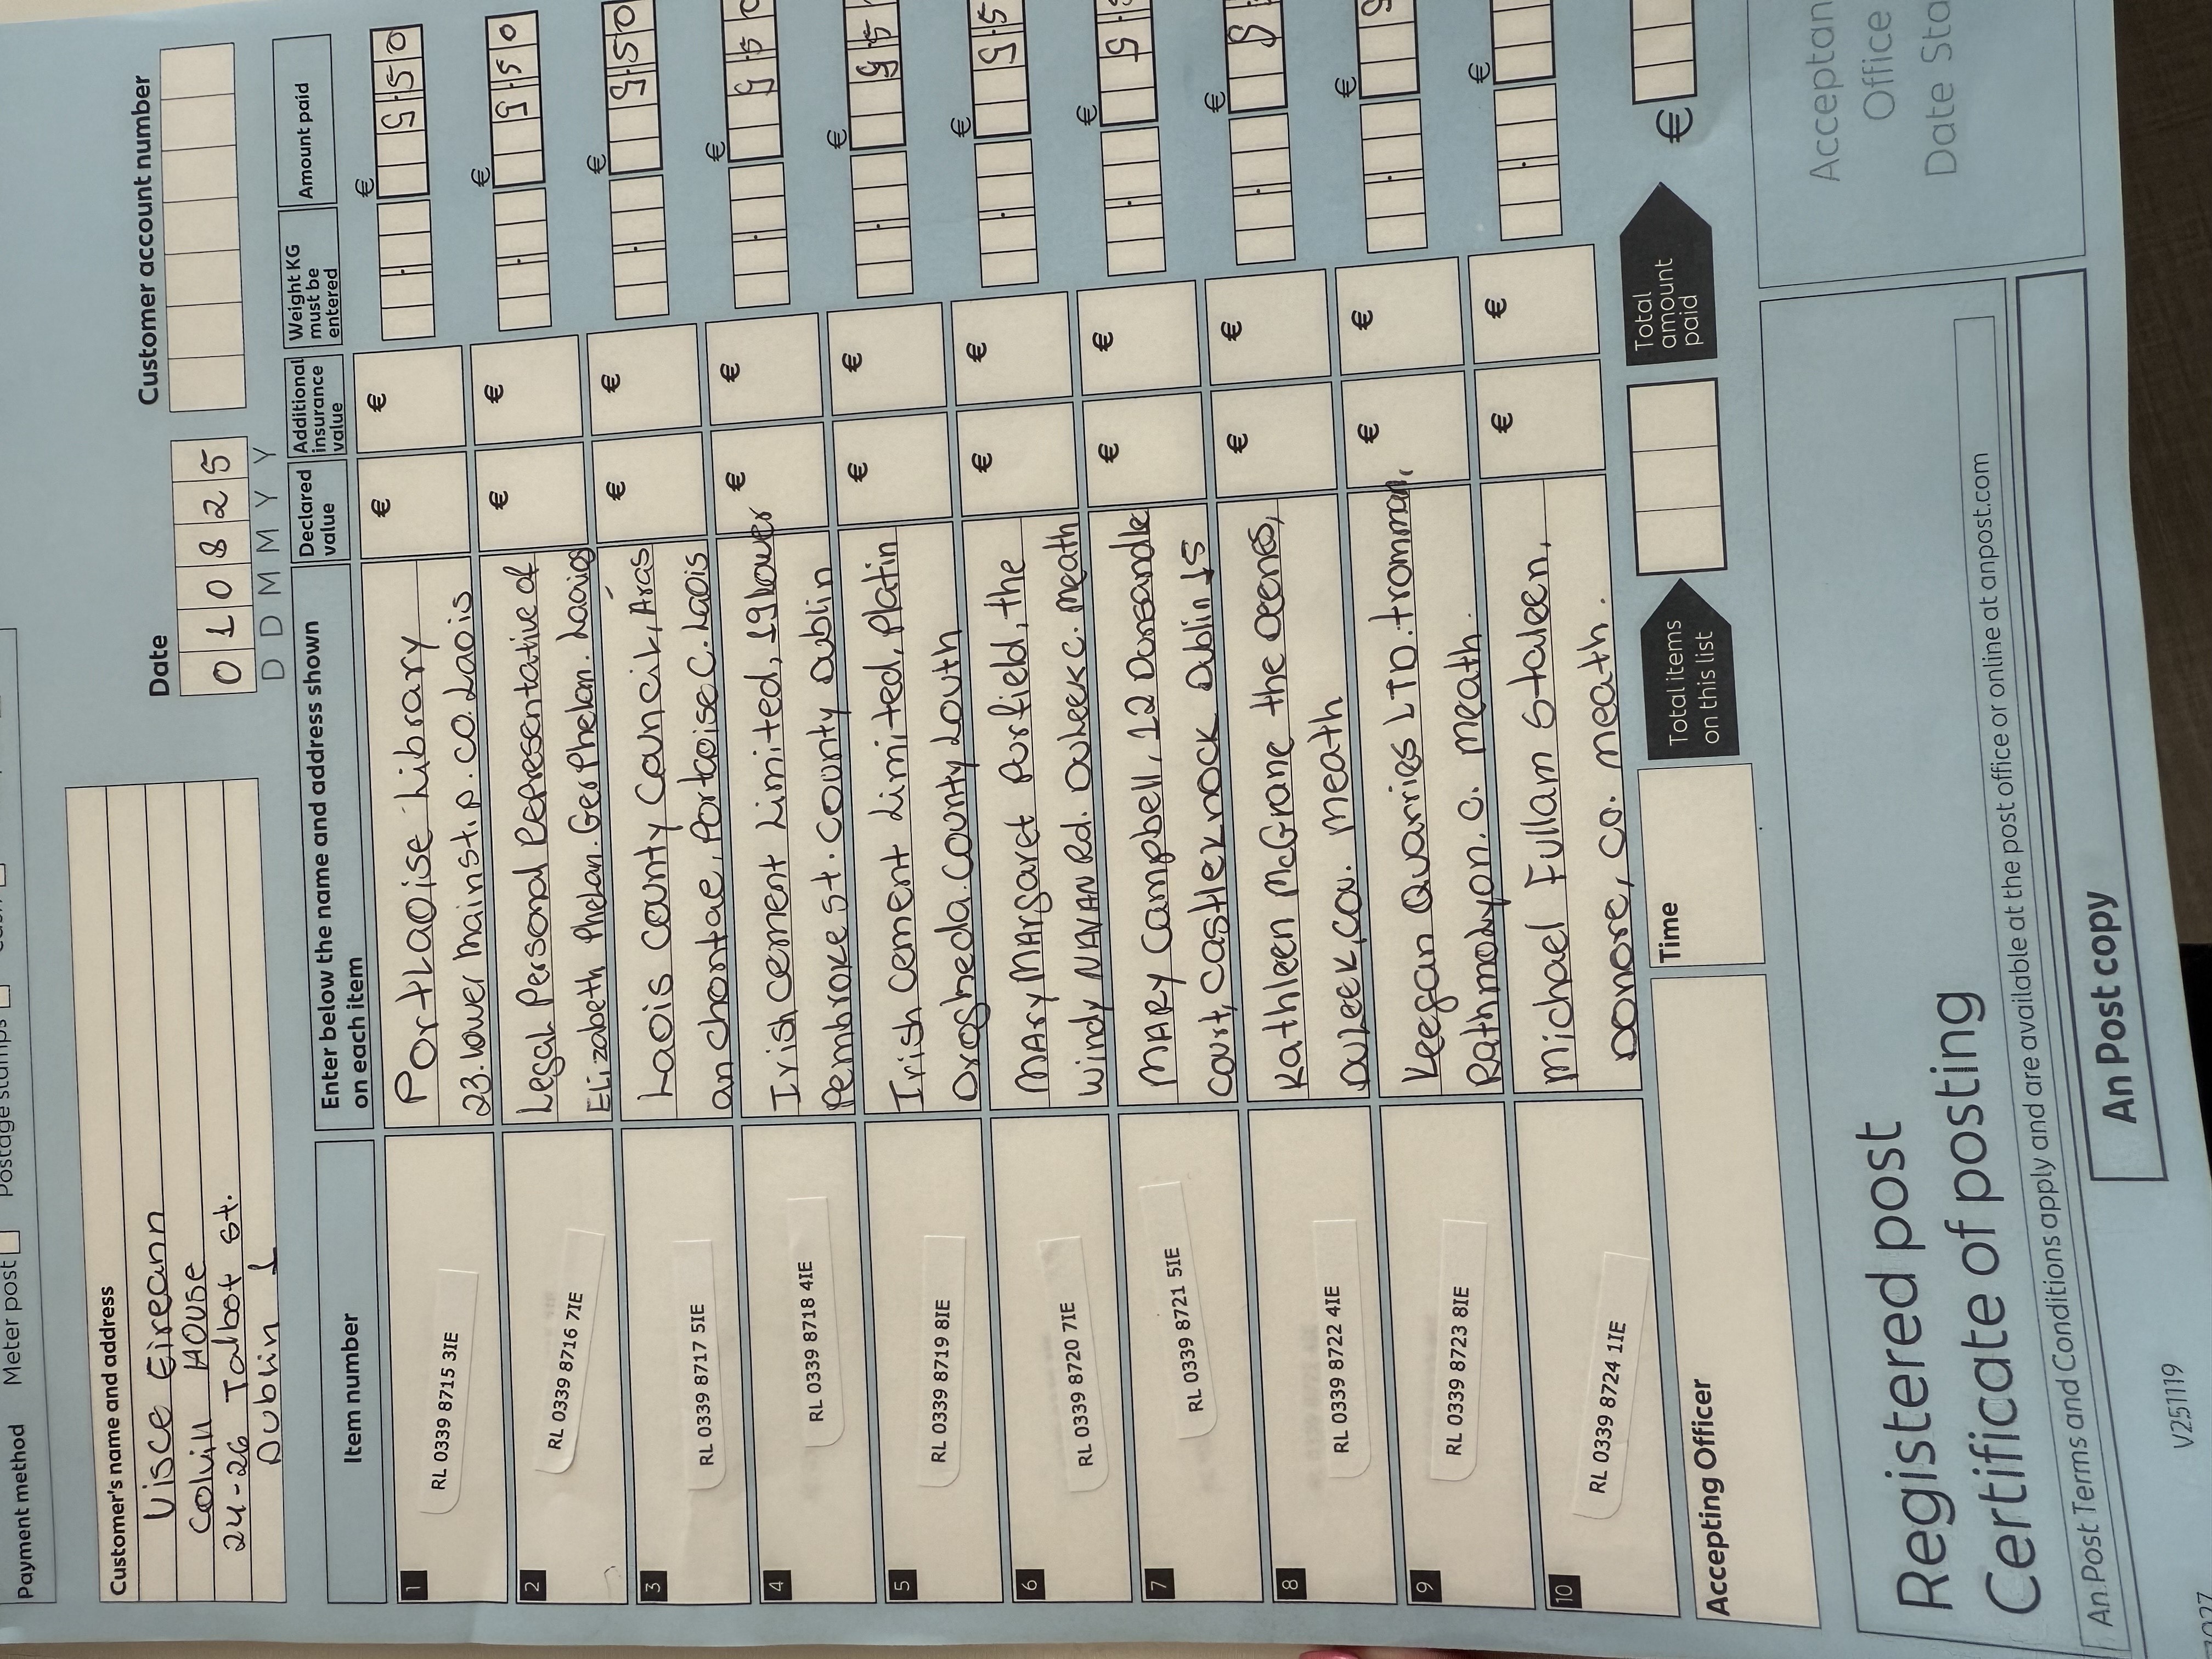 Payment method Meter post Postage stamps
Customer's name and address
Uisce Eireann
Colvill House
24-26 Talbot st.
Dublin 1
Date
010825
D D M M Y Y
Customer account number
Item number
Enter below the name and address shown on each item
Declared value
Additional insurance value
Weight KG must be entered
Amount paid
1 RL 0339 8715 3IE
PortLaoise Library
23. lower main st. P. CO. Laois
€ € € 5.50
2 RL 0339 8716 7IE
Legal Personal Representative of
Elizabeth Phelan. Ger Phelan. Laoigs
€ € € 5.50
3 RL 0339 8717 5IE
Laois County Council, Áras
an chontae, Portaoise C. Laois
€ € € 5.50
4 RL 0339 8718 4IE
Irish cement Limited, 19 Lower
Pembroke st. County Dublin
€ € € 5.50
5 RL 0339 8719 8IE
Irish Cement Limited, Platin
Drogheda. County Louth
€ € € 5.5
6 RL 0339 8720 7IE
MARY Margaret Purfield, the
Windy NAVAN Rd. Duleek C. Meath
€ € € 5.5
7 RL 0339 8721 5IE
MARY Campbell, 12 Dunsandle
Court, Castleknock Dublin 15
€ € € 5.
8 RL 0339 8722 4IE
Kathleen McGrane the
Duleek, Cou. Meath
€ € € 5.
9 RL 0339 8723 8IE
Keegan Quarries LTD. tromman,
Rathmolyon. C. Meath.
€ € €
10 RL 0339 8724 1IE
Michael Fullam Staleen,
Donore, Co. Meath.
€ € €
Accepting Officer
Time
Total items on this list
Total amount paid
€
Registered post
Certificate of posting
An Post Terms and Conditions apply and are available at the post office or online at anpost.com
An Post copy
Office
Date
V251119